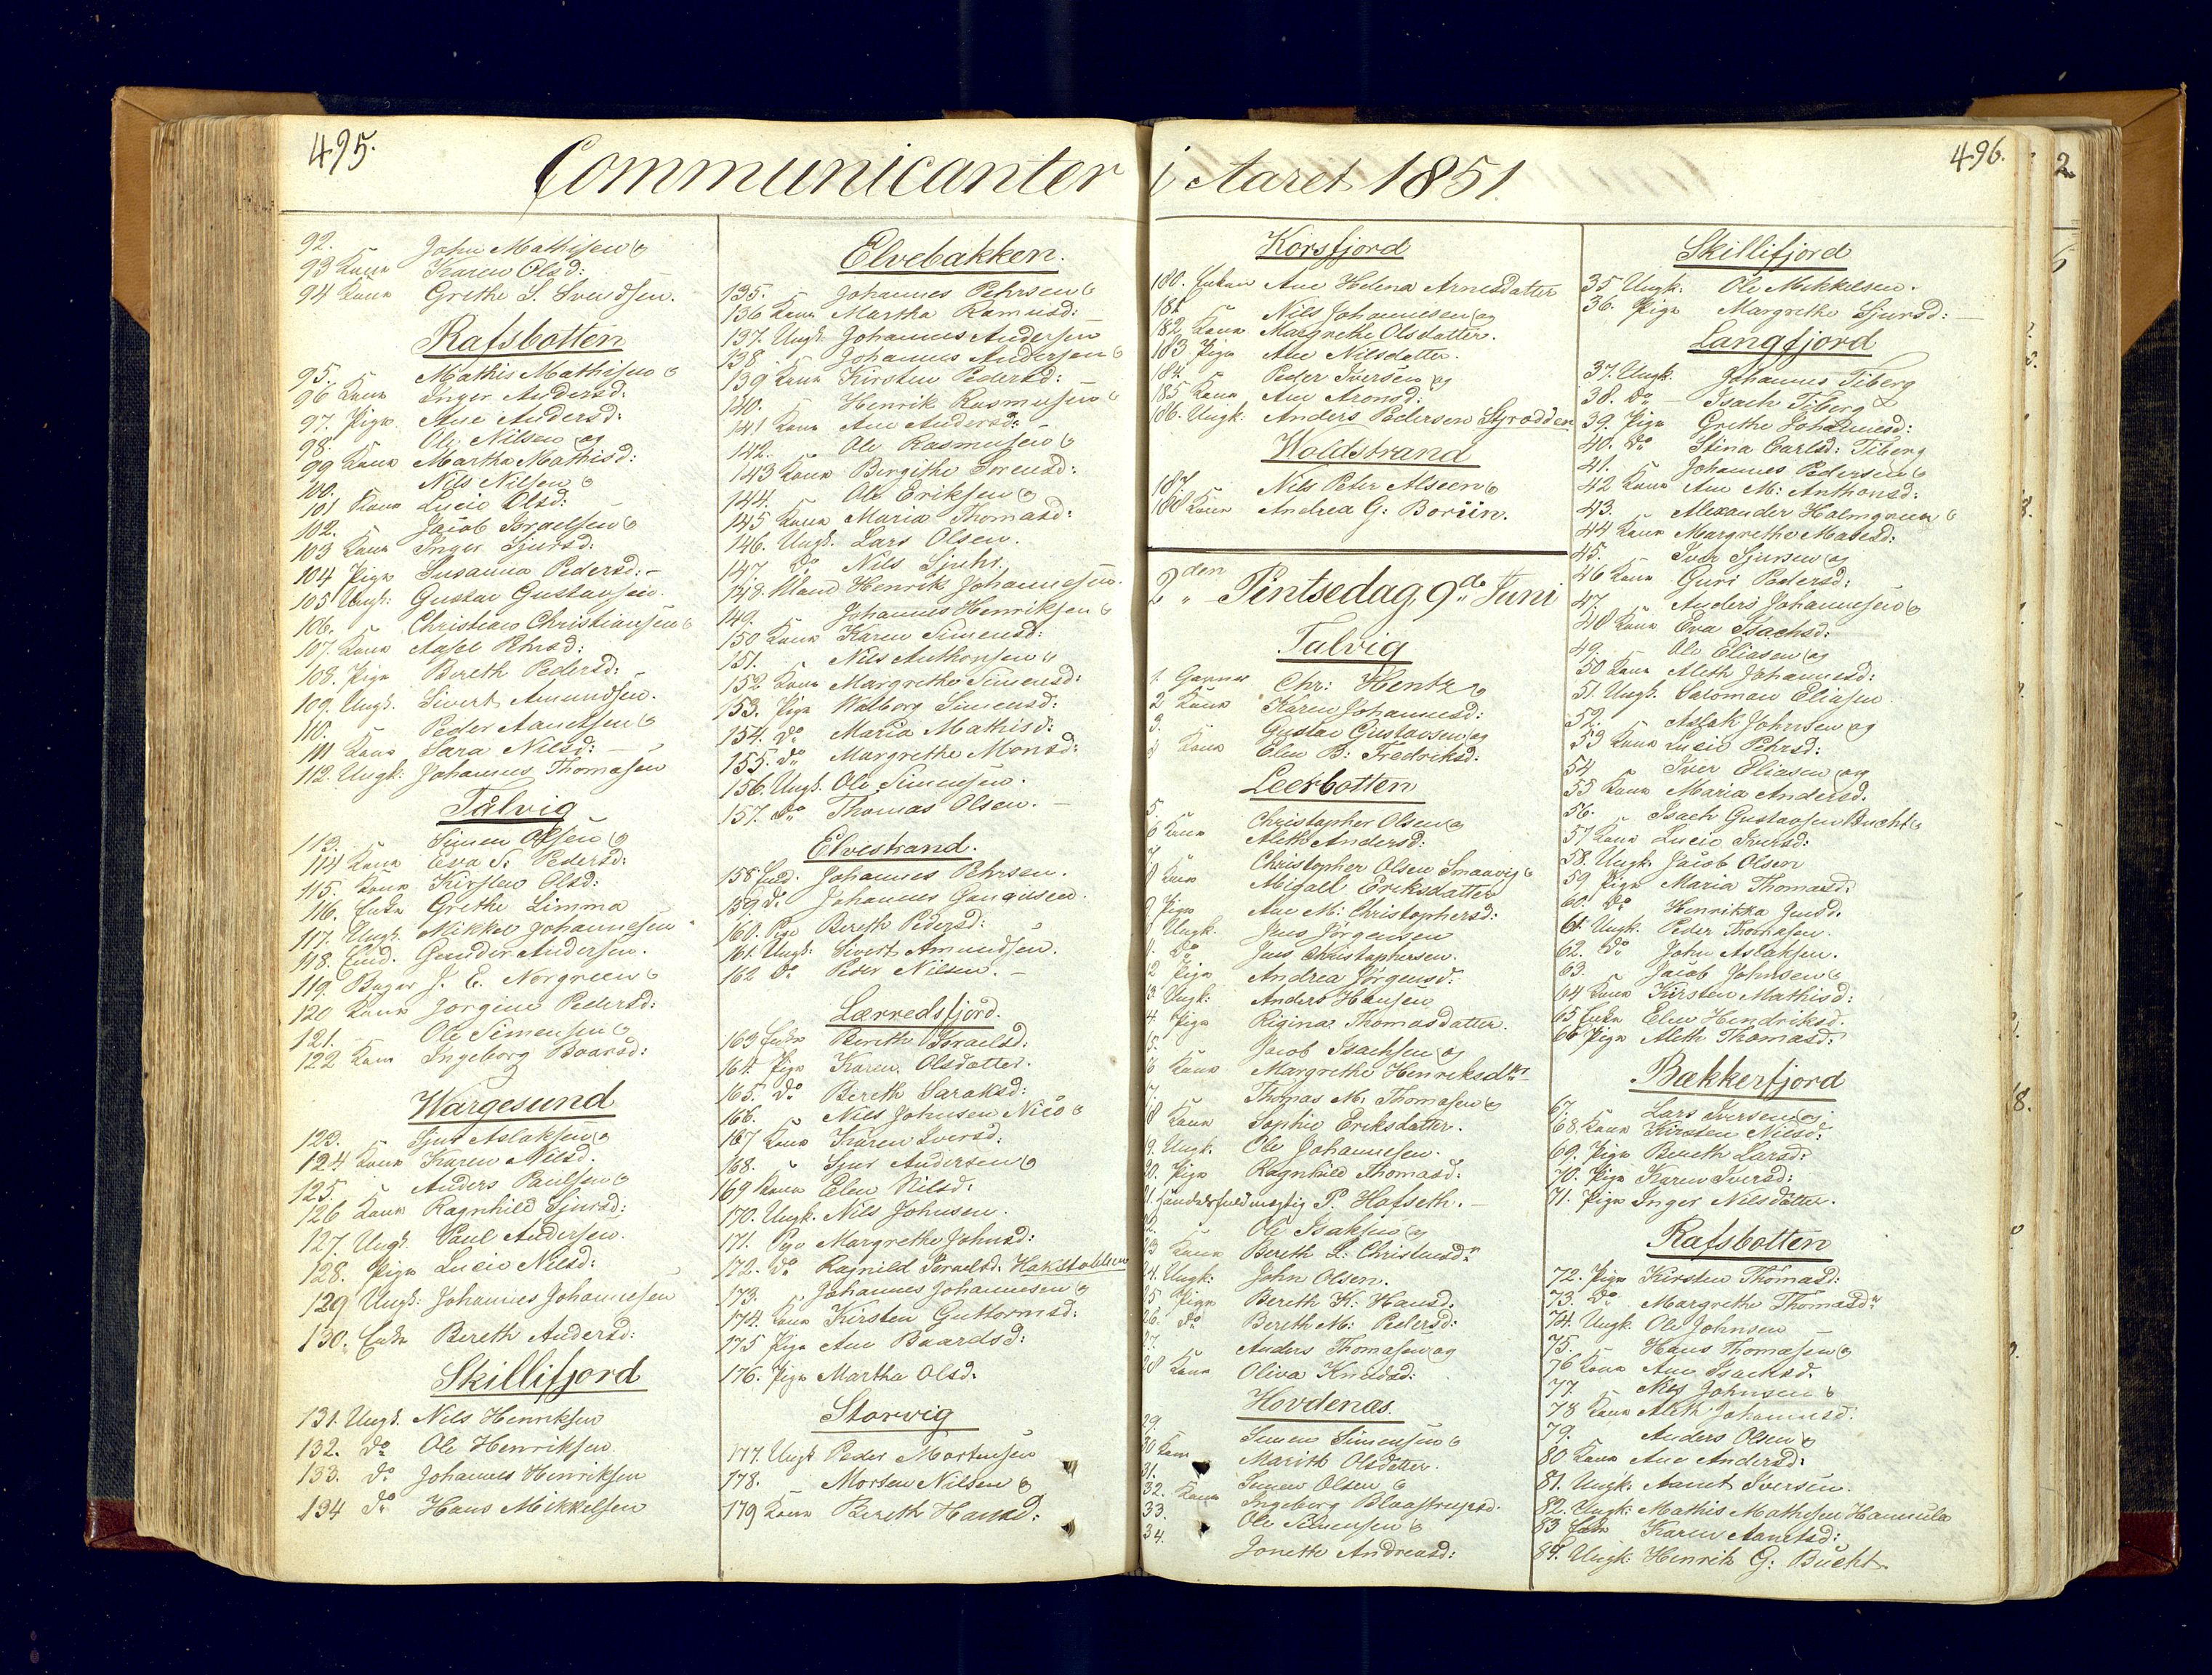 495.
Communicanter
92. John Mathisen og
93 Kone Karen Olsd:
94 Kone Grethe S. Svendsen.
Rafsbotten
95. Mathis Mathisen og
96 Kone Inger Andersd:
97. Pige Ane Andersd:
98. Ole Nilsen og
99 Kone Martha Mathisd:
100. Nils Nilsen og
101 Kone Lucie Olsd:
102. Jacob Israelsen og
103 Kone Inger Sjursd:
104 Pige Susanna Pedersd: -
105 Ungk: Gustav Gustavsen.
106. Christian Christiansen og
107. Kone Aasel Pehrsd:
108. Pige Bereth Pedersd:
109. Ungk. Sivert Amundsen.
110. Peder Aanetsen og
111 Kone Sara Nilsd: -
112. Ungk: Johannes Thomasen
Talvig
113. Simen Olsen og
114 Kone Eva S: Pedersd:
115. Kone Kirsten Olsd:
116. Enke Grethe Limma
117. Ungk. Mikkel Johannesen
118. Enk. Gunder Andersen.
119. Bager J. E. Norgreen og
120 Kone Jorgine Pedersd:
121. Ole Simensen og
122 Kone Ingeborg Baarsd:
Wargesund
123. Sjur Aslaksen og
124 Kone Karen Nilsd.
125. Anders Paulsen og
126 Kone Ragnhild Sjursd:
127. Ungk. Paul Andersen.
128. Pige Lucie Nilsd:
129 Ungk: Johannes Johannesen
130. Enke Bereth Andersd:
Skillifjord
131. Ungk. Nils Henriksen
132. do Ole Henriksen
133. do Johannes Henriksen
134 do Hans Mikkelsen
Elvebakken.
135. Johannes Pehrsen og
136 Kone Martha Ramusd: -
137. Ungk Johannes Andersen
138. Johannes Andersen og
139 Kone Kirsten Pedersd:
140. Henrik Rasmusen og
141 Kone Ane Andersd:
142. Ole Rasmusen og
143 Kone Bergithe Irensd:
144. Ole Eriksen og
145 Kone Maria Thomasd:
146. Ungk. Lars Olsen.
147 do Nils Sjuhr.
148. Mand Henrik Johannesen.
149. Johannes Henriksen og
150 Kone Karen Simensd:
151. Nils Anthonsen og
152 Kone Margrethe Simensd:
153. Pige Walborg Simensd:
154. do Maria Mathisd:
155. do Margrethe Monsd:
156. Ungk. Ole Simensen.
157. do Thomas Olsen. -
Elvestrand.
158 Enk. Johannes Pehrsen.
159 do Johannes
160. Pige Bereth Pedersd:
161. Ungk: Sivert Amundsen.
162 do Peder Nilsen. -
Lærredsfjord.
163 Enke Bereth Israelsd:
164 Pige Karen Olsdatter.
165. do Bereth Saraksd:
166. Nils Johnsen Nico og
167 Kone Karen Iversd:
168. Sjur Andersen og
169 Kone Elen Nilsd:
170. Ungk. Nils Johnsen.
171. Pige Margrethe Johnsd:
172. do Ragnild Israelsd. Hakstabben
173. Johannes Johannesen og
174. Kone Kirsten Guttormsd:
175 Pige Ane Baardsd:
176. Pige Martha Olsd.
Storvig
177. Ungk Peder Mortensen
178. Morten Nilsen og
179 Kone Bereth Hansd:
496.
i Aaret 1851
Korsfjord
180. Enken Ane Helena Arnesdatter
181 Nils Johannesen og
182. Kone Margrethe Olsdatter.
183 Pige Ane Nilsdatter.
184. Peder Iversen og
185 Kone Ane Aronsd:
186. Ungk: Anders Pedersen Styrødden
Woldstrand
187 Nils Peter Alseen og
188 Kone Andrea G: Boriin.
2den Pintsedag, 9de Juni
Talvig
1. Garver Chr: Hentz og
2 Kone Karen Johannesd:
3. Gustav Gustavsen og
4 Kone Elen B: Fredriksd:
Leerbotten
5. Christopher Olsen og
6 Kone Aleth Andersd:
7 Christopher Olsen Smaavig og
8 Kone Migall Eriksdatter
9 Pige Ane M: Christophersd:
Ungk. Jens Jörgensen
1. do Jens Christophersen.
2 Pige Andrea Jörgensd:
3 Ungk: Anders Hansen
4. Pige Rigina Thomasdatter.
5. Jacob Isachsen og
6 Kone Margrethe Henriksdtr
7. Thomas M: Thomasen og
18 Kone Sophie Eriksdatter.
19. Ungk. Ole Johannesen.
20. Pige Ragnhild Thomasd.
21. Handelsfuldmægtig P. Hofseth. -
22. Ole Isaksen og
23 Kone Bereth L: Christensdr
24. Ungk: John Olsen.
25 Pige Bereth K: Hansd.
26. do Bereth M: Pedersd:
27. Anders Thomasen og
28 Kone Oliva Knudsd:
Hovdenæs.
29. Simen Simensen og
30 Kone Marith Olsdatter.
31. Simen Olsen og
32. Kone Ingeborg Blaastrupsd.
33. Ole Simensen og
34. Jonette Andreasd:
Skillifjord
35 Ungk: Ole Mikkelsen.
36. Pige Margrethe Sjursd: -
Langfjord
37. Ungk. Johannes Tiberg
38. do - Isach Tiberg
39. Pige Grethe Johannesd:
40. do Stina Carlsd: Tiberg
41. Johannes Pedersen og
42 Kone Ane M: Anthonsd:
43. Alexander Halmgreen og
44 Kone Margrethe Matesd:
45. Iver Sjursen og
46 Kone Guri Pedersd:
47 Anders Johannesen og
48 Kone Eva Isachsd:
49. Ole Eliasen og
50 Kone Aleth Johannesd:
51. Ungk. Salomon Eliasen
52. Aslak Johnsen og
53 Kone Lucie Pehrsd:
54 Iver Eliasen og
55 Kone Maria Andersd.
56. Isach Gustavsen Bucht og
57 Kone Lucie Iversd:
58. Ungk. Jacob Olsen
59 Pige Maria Thomasd:
60. do Henrikka Jensd.
61. Ungk. Peder Thomasen.
62. do John Aslaksen.
63. Jacob Johnsen og
64 Kone Kirsten Mathisd:
65 Enke Elen Hendriksd.
66 Pige Aleth Thomasd:
Bækkerfjord
67. Lars Iversen og
68. Kone Kirsten Nilsd:
69. Pige Bereth Larsd:
70. Pige Karen Iversd:
71. Pige Inger Nilsdatter.
Rafsbotten
72. Pige Kirsten Thomasd:
73. do Margrethe Thomasdr
74. Ungk. Ole Johnsen
75. Hans Thomasen og
76 Kone Ane Isachsd.
77. Nils Johnsen og
78 Kone Aleth Johannesd.
79. Anders Olsen og
80 Kone Ane Andersd:
81. Ungk: Aanet Iversen.
82. Ungk: Mathis Mathisen Hannula
83 Enke Karen Aanetsd:
84. Ungk: Henrik G: Bucht.
2